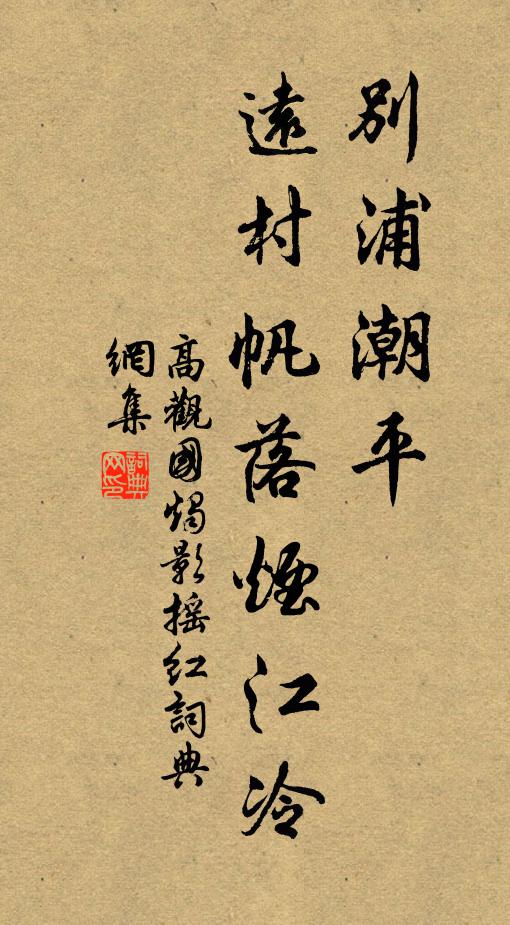 別浦潮平
遠村帆落煙江冷
高觀國燭影摇紅詞典
網集
詞典
网印